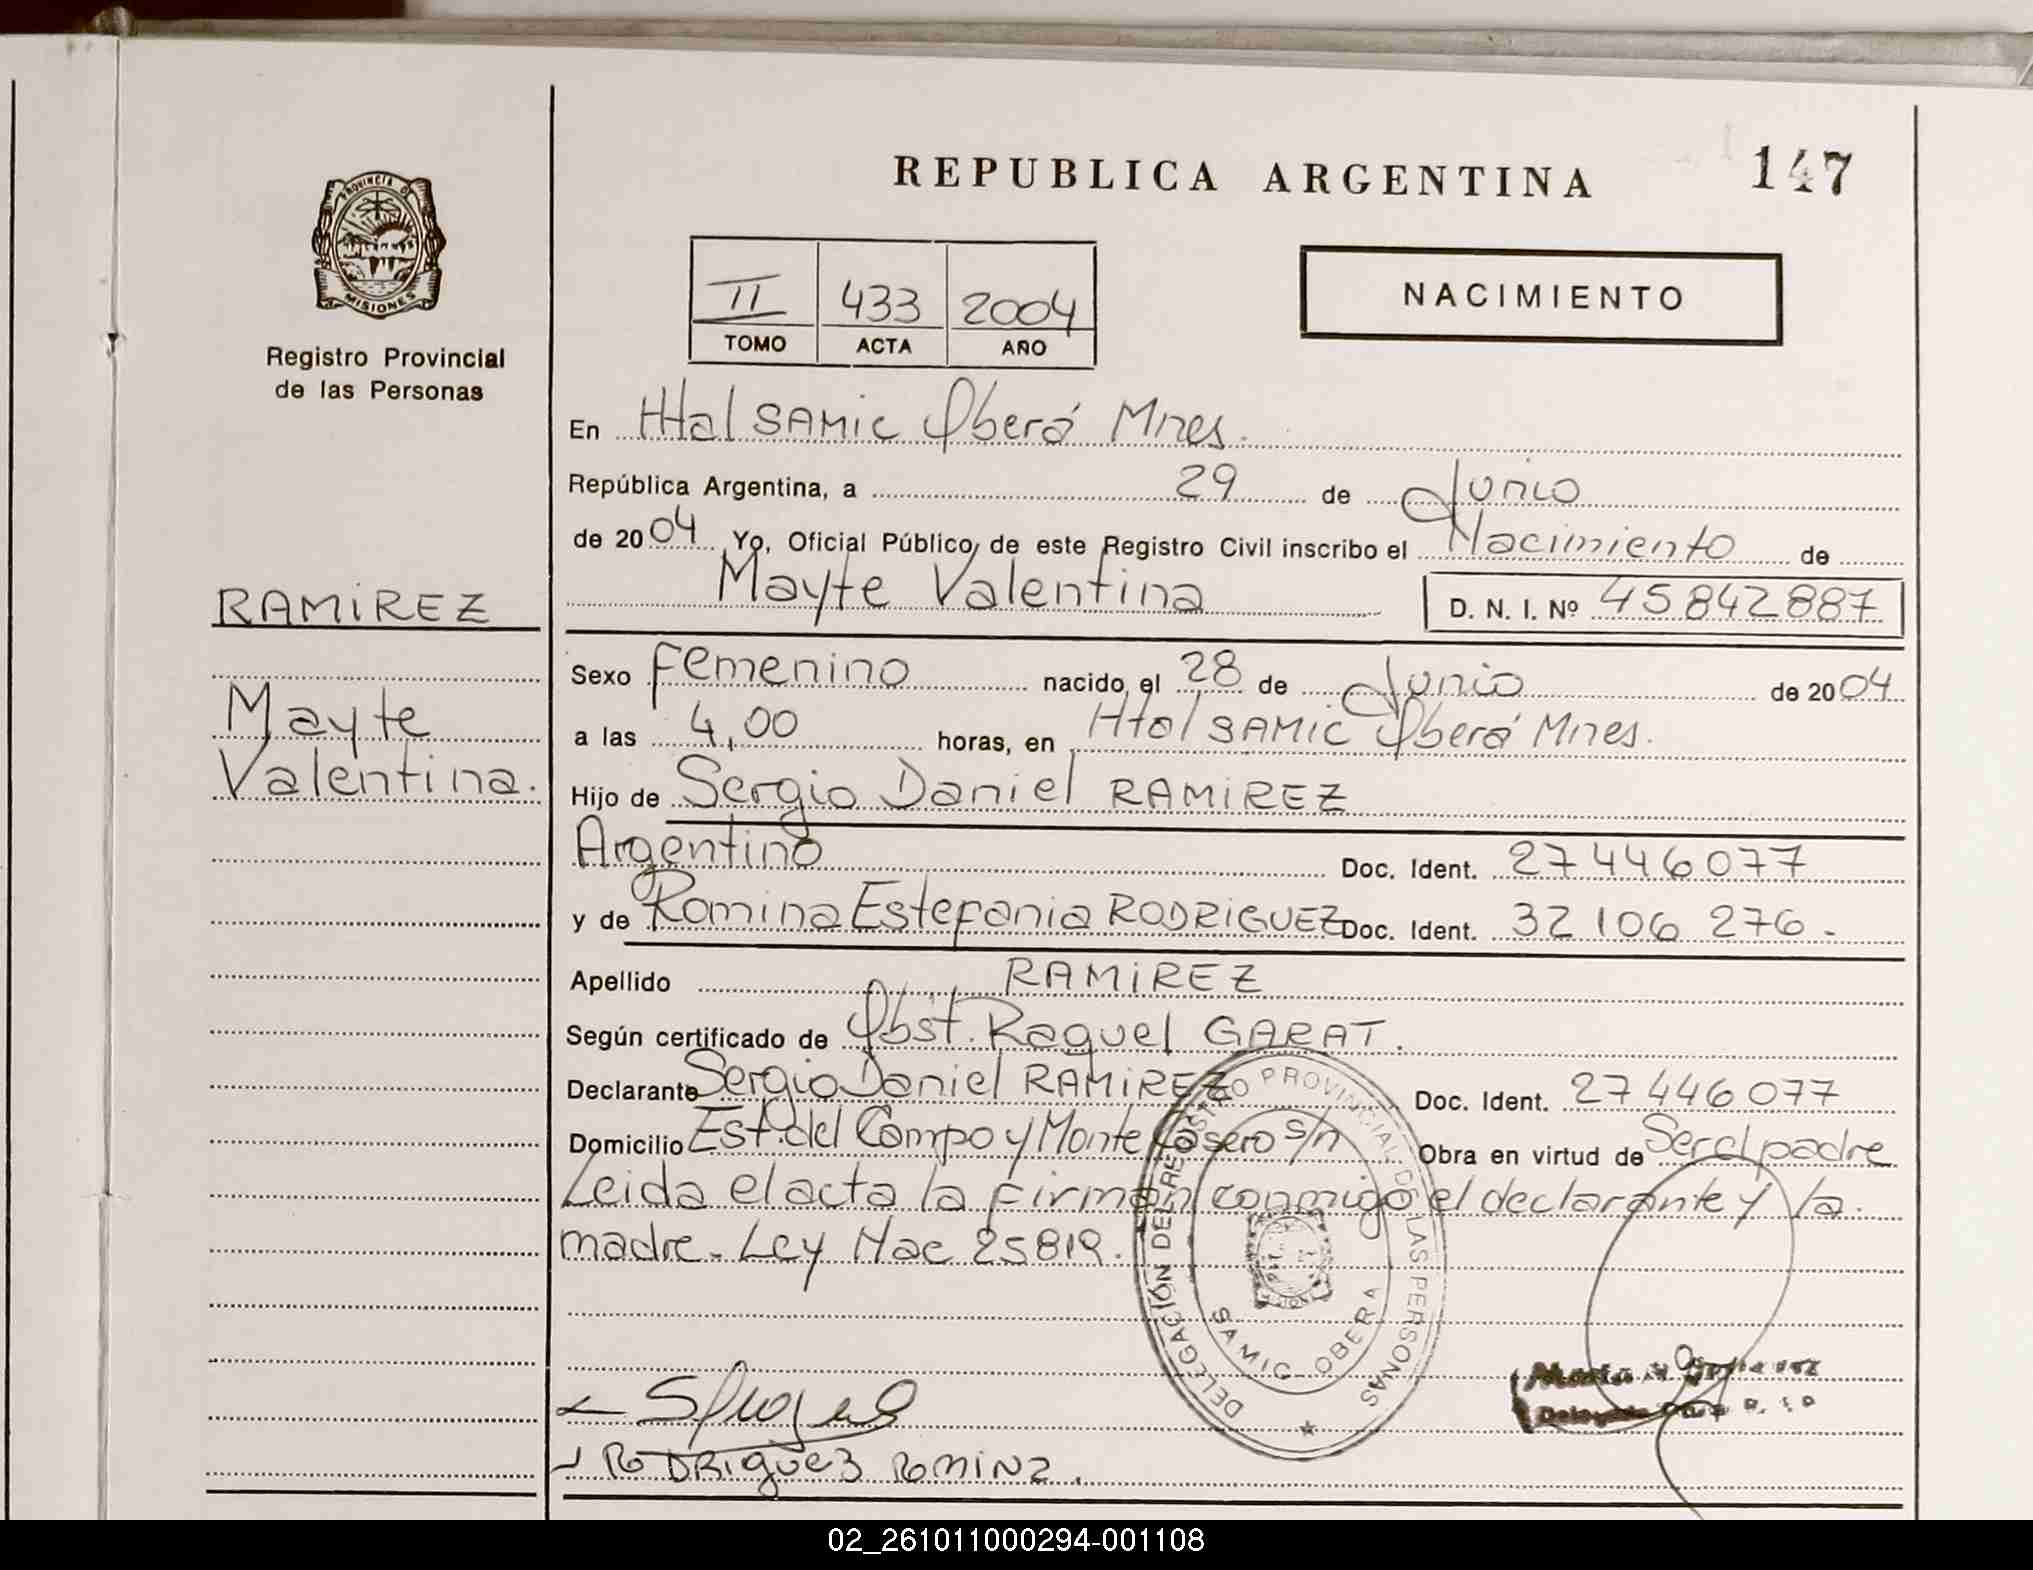 REPUBLICA ARGENTINA
147
PROVINCIA DE
MISIONES
Registro Provincial
de las Personas
II 433 2004
TOMO ACTA AÑO
NACIMIENTO
En HHal SAMiC Oberá Mnes.
República Argentina, a 29 de Junio
de 2004 Yo, Oficial Público, de este Registro Civil inscribo el Nacimiento de
Mayte Valentina D. N. I. Nº 45842887
RAMiREZ
Mayte
Valentina.
Sexo Femenino nacido, el 28 de Junio de 2004
a las 4,00 horas, en Htal SAMIC Oberá Mnes.
Hijo de Sergio Daniel RAMiREZ
Argentino Doc. Ident. 27446077
y de Romina Estefania RODRiGUEZ Doc. Ident. 32106 276.
Apellido RAMiREZ
Según certificado de Obst. Raquel GARAT.
Declarante Sergio Daniel RAMiREZ Doc. Ident. 27446077
Domicilio Est. del Campo y Monte Casero s/n Obra en virtud de Ser el padre
Leida el acta la firman conmigo el declarante y la
madre. Ley Nac 25819.
DELEGACIÓN DEL REGISTRO PROVINCIAL DE LAS PERSONAS
SAMIC OBERA
RODRIguez Romina.
02_261011000294-001108